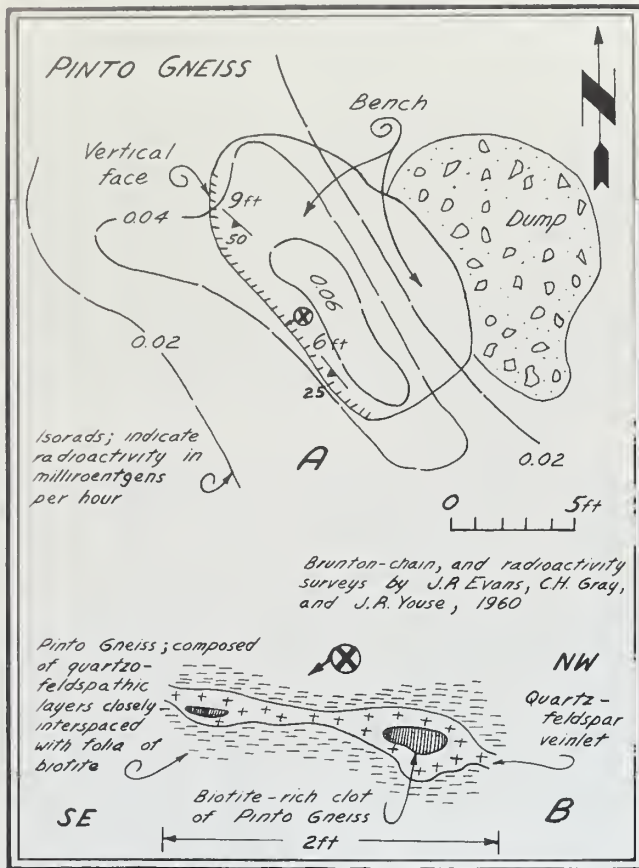 PINTO GNEISS
Bench
Vertical
face
9ft
0.04
50
Dump
0.06
0.02
6ft
25
Isorads; indicate
radioactivity in
milliroentgens
per hour
A
0.02
0 5ft
Brunton-chain, and radioactivity
surveys by J.R Evans, C.H. Gray,
and J.R. Youse, 1960
Pinto Gneiss; composed
of quartzo-
feldspathic
layers closely
interspaced
with folia of
biotite
NW
Quartz-
feldspar
veinlet
Biotite-rich clot
of Pinto Gneiss
SE
B
2ft